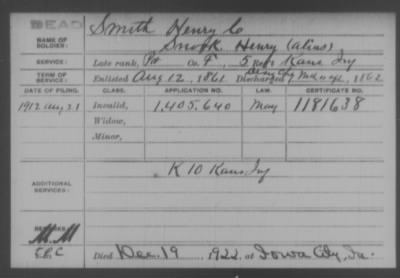 DEAD
Smith Henry C
NAME OF SOLDIER: Snook, Henry (alias)
SERVICE: Late rank, Pvt Co. F, 5 Reg't Kans Inf
TERM OF SERVICE: Enlisted Aug 12, 1861 Discharged 1862
DATE OF FILING. CLASS. APPLICATION NO. LAW. CERTIFICATE NO.
1912 Aug 21 Invalid, 1,405,640 May 1181638
Widow,
Minor,
ADDITIONAL SERVICES: K 10 Kans Inf
REMARKS: M.M
Died Dec 19, 1922, at Iowa City, Ia.